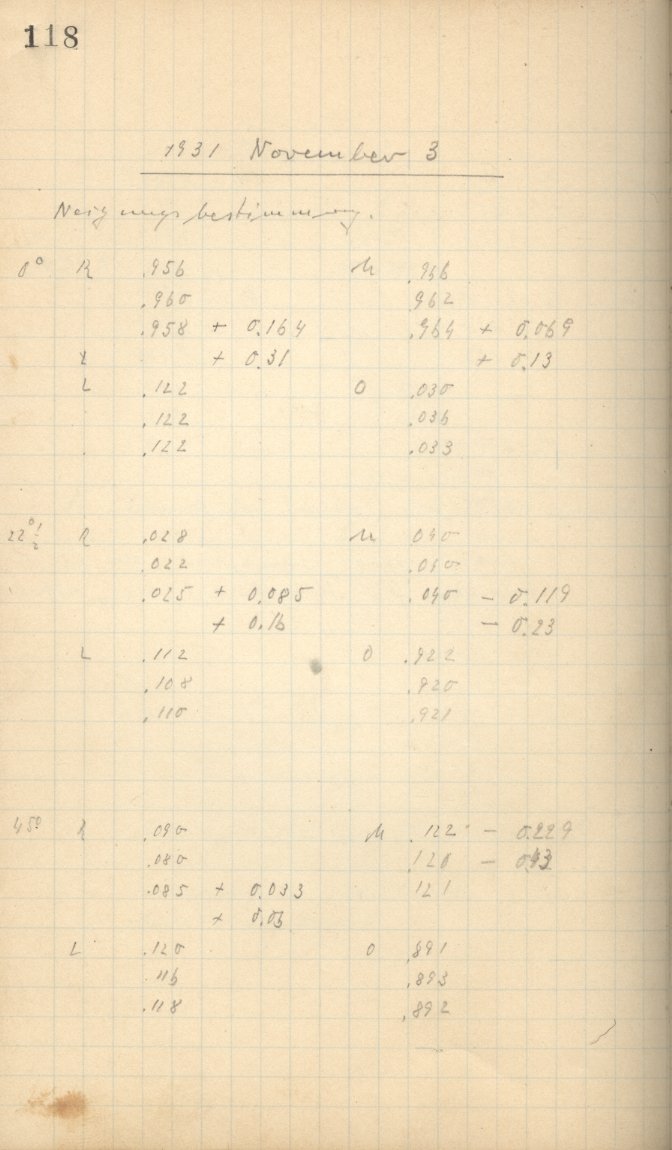 118
1931 November 3
Neigungsbestimmung.
0° R .956 M .966
.960 .962
.958 + 0.164 .964 + 0.069
+ 0.31 + 0.13
L .122 O .030
.122 .036
.122 .033
22°½ R .028 M 040
.022
.025 + 0.085 .040 - 0.119
+ 0.16 - 0.23
L .112 O .922
.108 .920
.110 .921
45° R .090 M .122 - 0.229
.080 .120
.085 + 0.033 121
+ 0.06
L .120 O .891
.116 .893
.118 .892